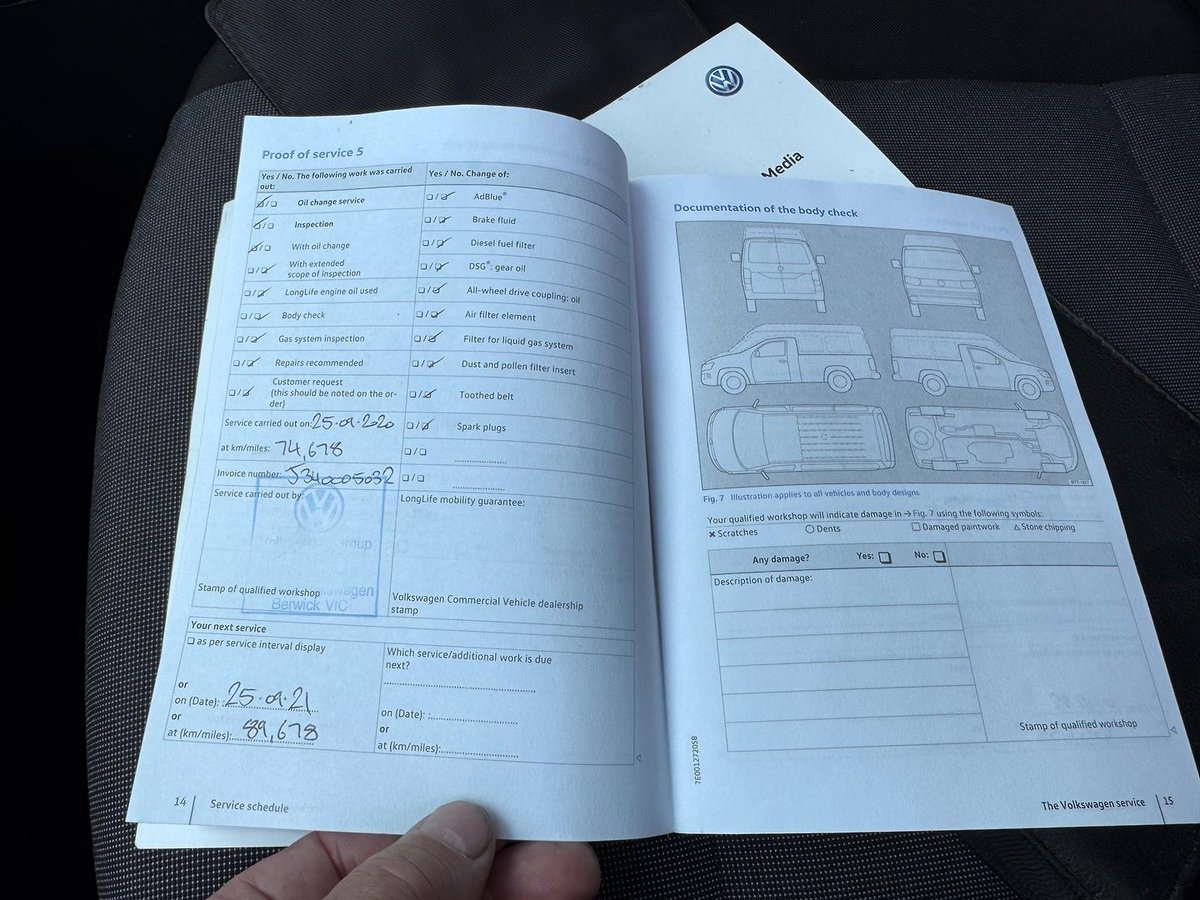 Media
Proof of service 5
Yes / No. The following work was carried out:
Yes / No. Change of:
☑/☐ Oil change service
☐/☑ AdBlue®
☑/☐ Inspection
☐/☑ Brake fluid
☑/☐ With oil change
☐/☑ Diesel fuel filter
☐/☑ With extended
scope of inspection
☐/☑ DSG®: gear oil
☐/☑ LongLife engine oil used
☐/☑ All-wheel drive coupling: oil
☐/☑ Body check
☐/☑ Air filter element
☐/☑ Gas system inspection
☐/☑ Filter for liquid gas system
☐/☑ Repairs recommended
☐/☑ Dust and pollen filter insert
☐/☑ Customer request
(this should be noted on the or-
der)
☐/☑ Toothed belt
Service carried out on: 25.09.2020
☐/☑ Spark plugs
at km/miles: 74,678
☐/☐
Invoice number: J340005032
☐/☐
Service carried out by:
LongLife mobility guarantee:
Stamp of qualified workshop
Berwick VIC
Volkswagen Commercial Vehicle dealership
stamp
Your next service
☐ as per service interval display
Which service/additional work is due
next?
or
on (Date): 25.09.21
on (Date):
or
or
at (km/miles): 89,678
at (km/miles):
14 Service schedule
Documentation of the body check
Fig. 7 Illustration applies to all vehicles and body designs
Your qualified workshop will indicate damage in → Fig. 7 using the following symbols:
✖ Scratches ○ Dents □ Damaged paintwork △ Stone chipping
Any damage? Yes: ☐ No: ☐
Description of damage:
Stamp of qualified workshop
7E0012720SB
The Volkswagen service 15